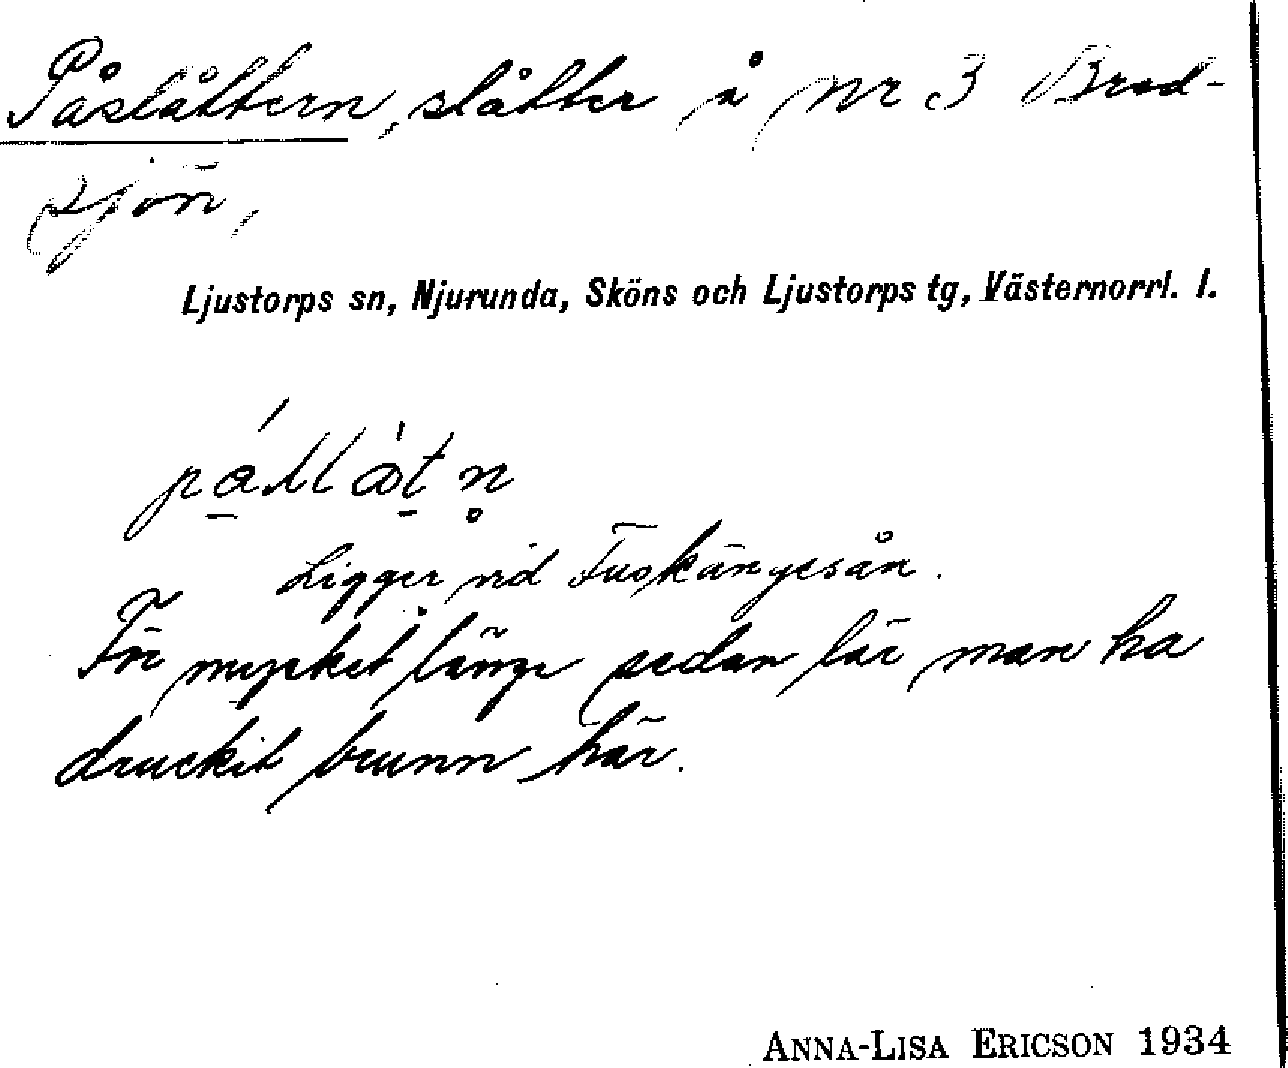 Påslåttern, slåtter å nr 3 Bred-
sjön,
Ljustorps sn, Njurunda, Sköns och Ljustorps tg, Västernorrl. l.
Ligger vid Tuskängesån.
För mycket länge sedan lär man ha
druckit brunn här.
ANNA-LISA ERICSON 1934